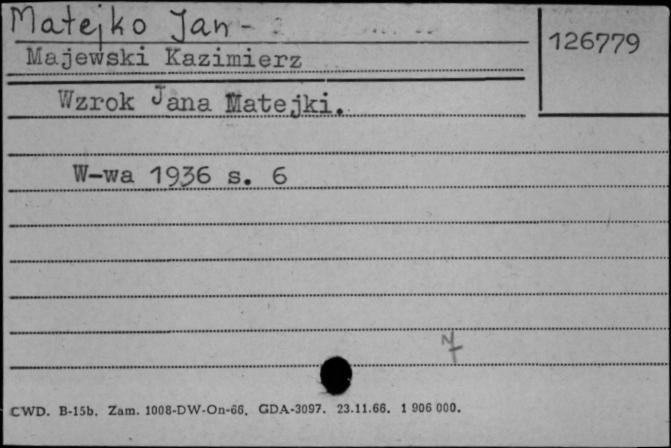 Matejko Jan -
126779
Majewski Kazimierz
Wzrok Jana Matejki.
W-wa 1936 s. 6
CWD. B-15b. Zam. 1008-DW-On-66. GDA-3097. 23.11.66. 1 906 000.